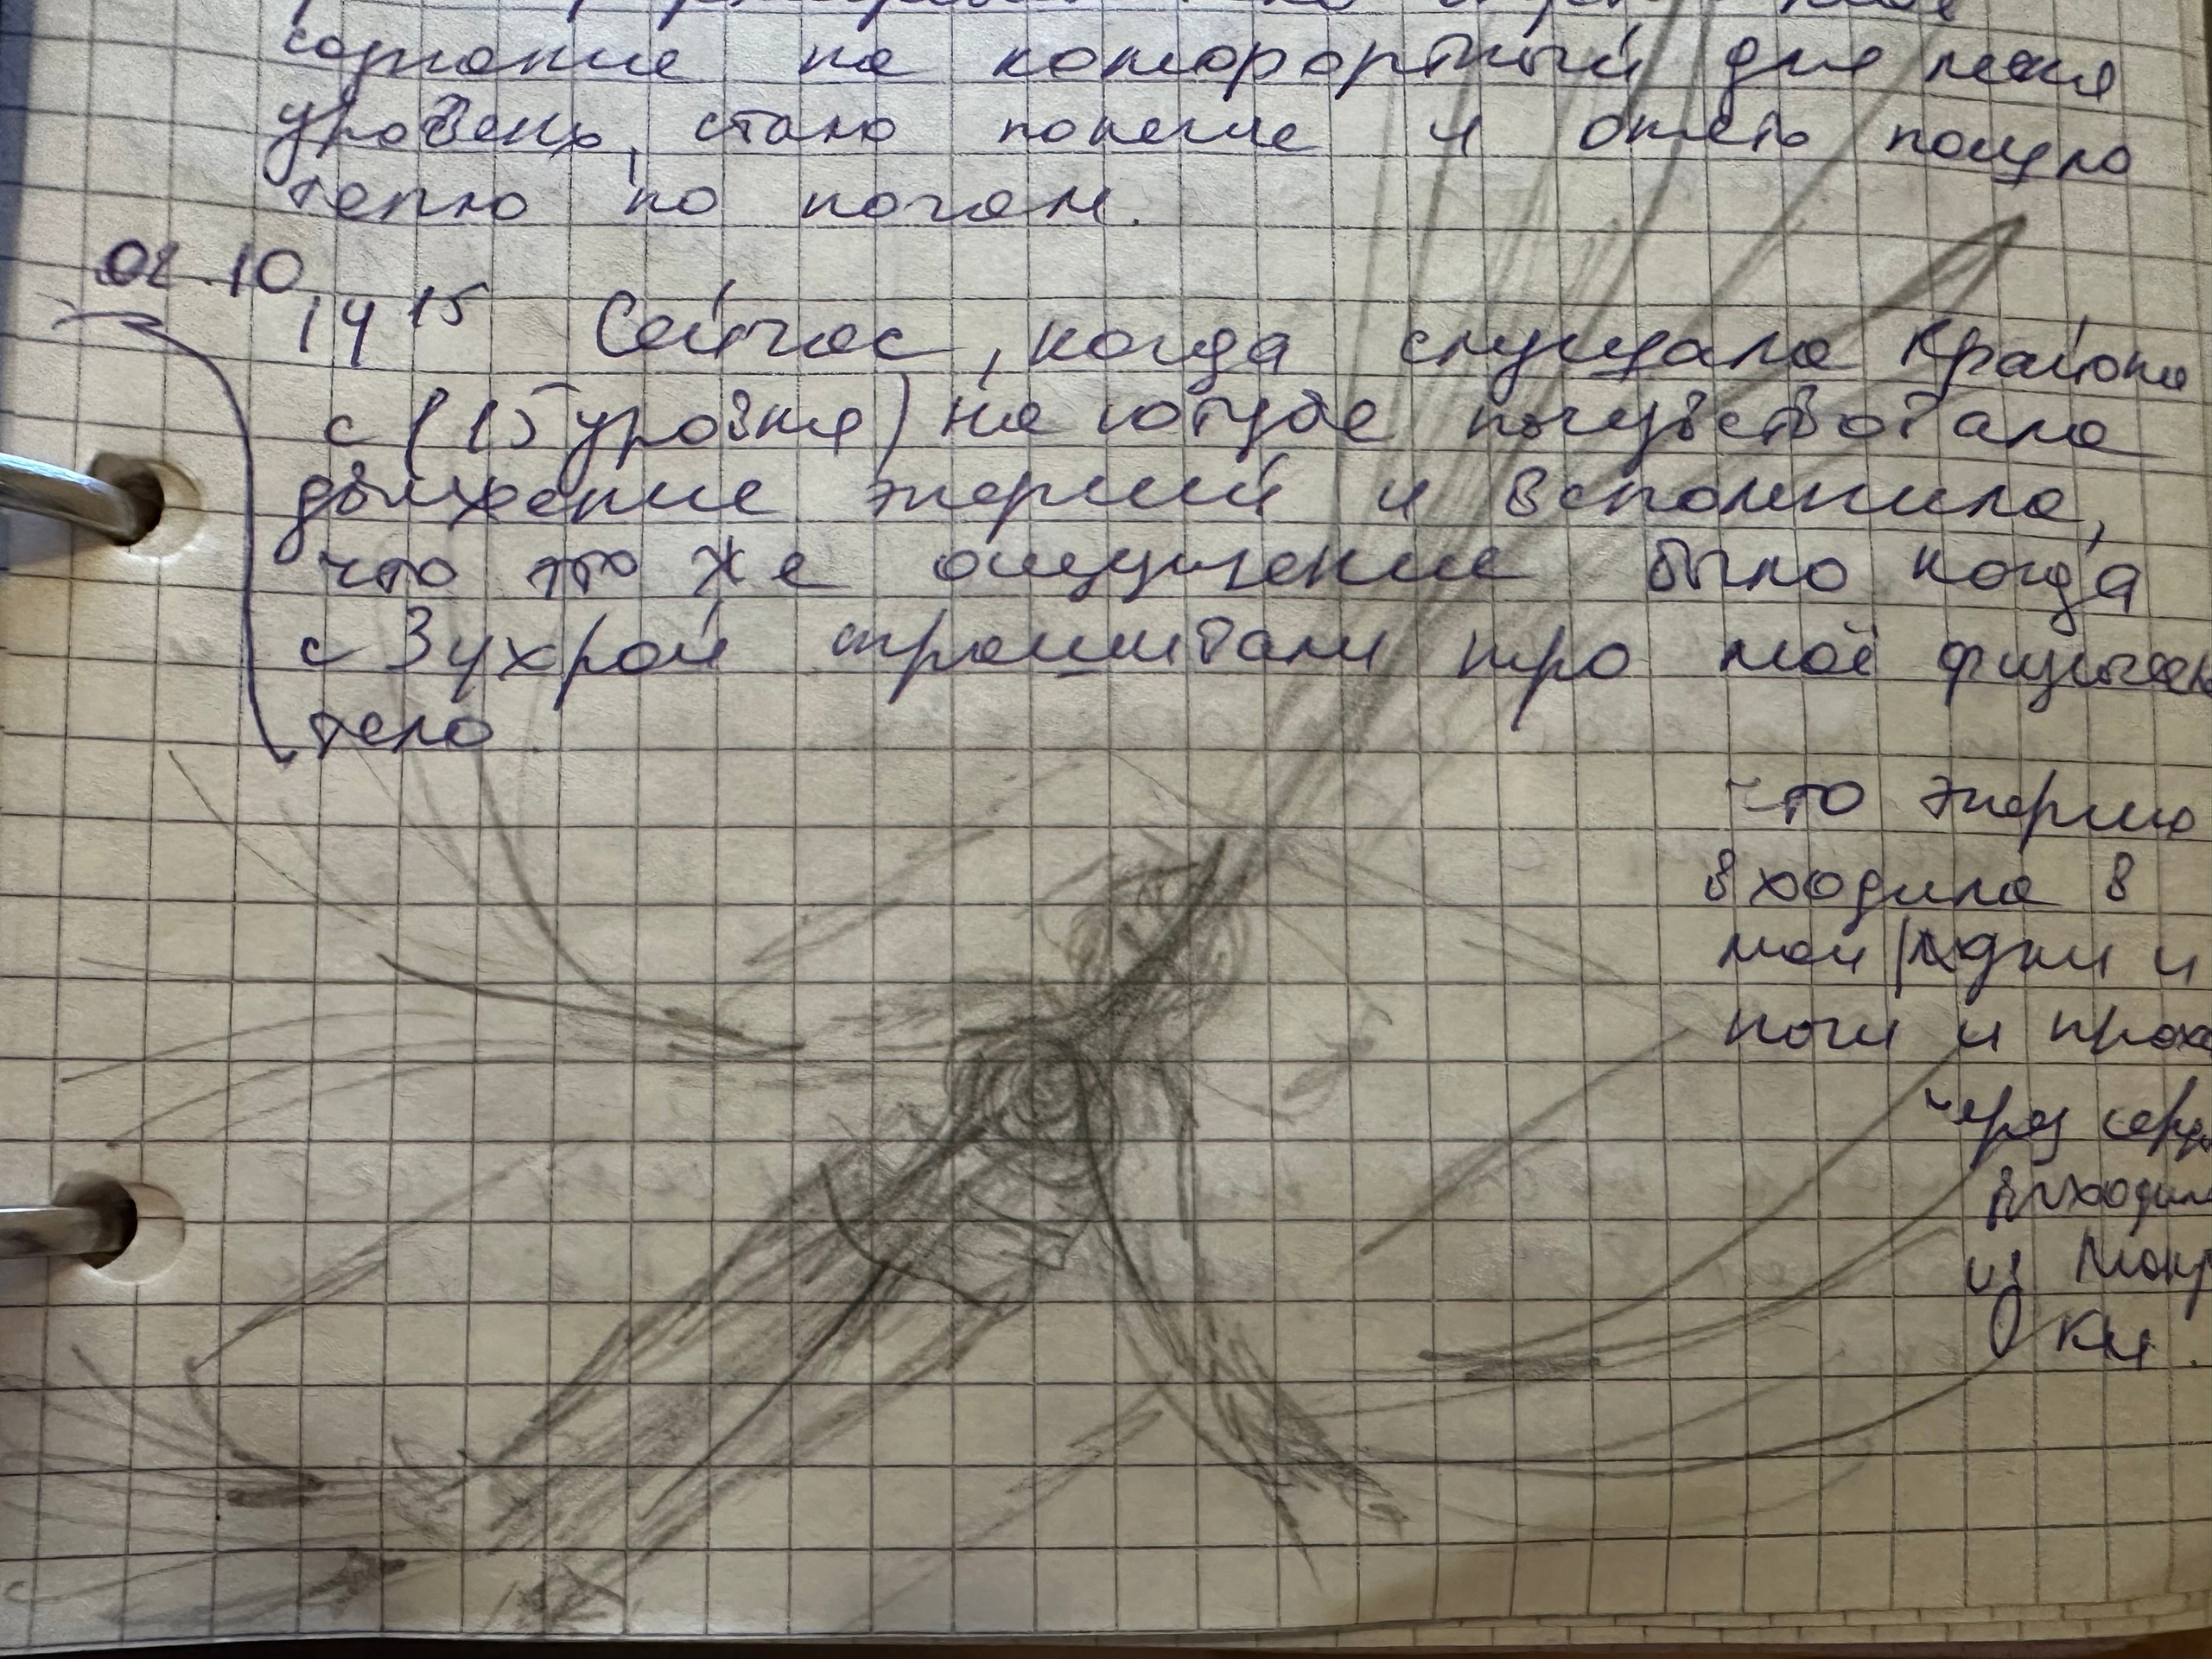 сознание на комфортный для меня
уровень, стало полегче и опять пошло
тепло по ногам.
02.10
14 15 Сейчас, когда слушала Крайона
с (15 уровня) на ютубе почувствовала
движение энергий и вспомнила,
что это же ощущение было когда
с Зухрой про моё физическ
тело.
что энергию
входила в
мои и
ноги и прохо
через сердц
выходила
из Маку
ки.